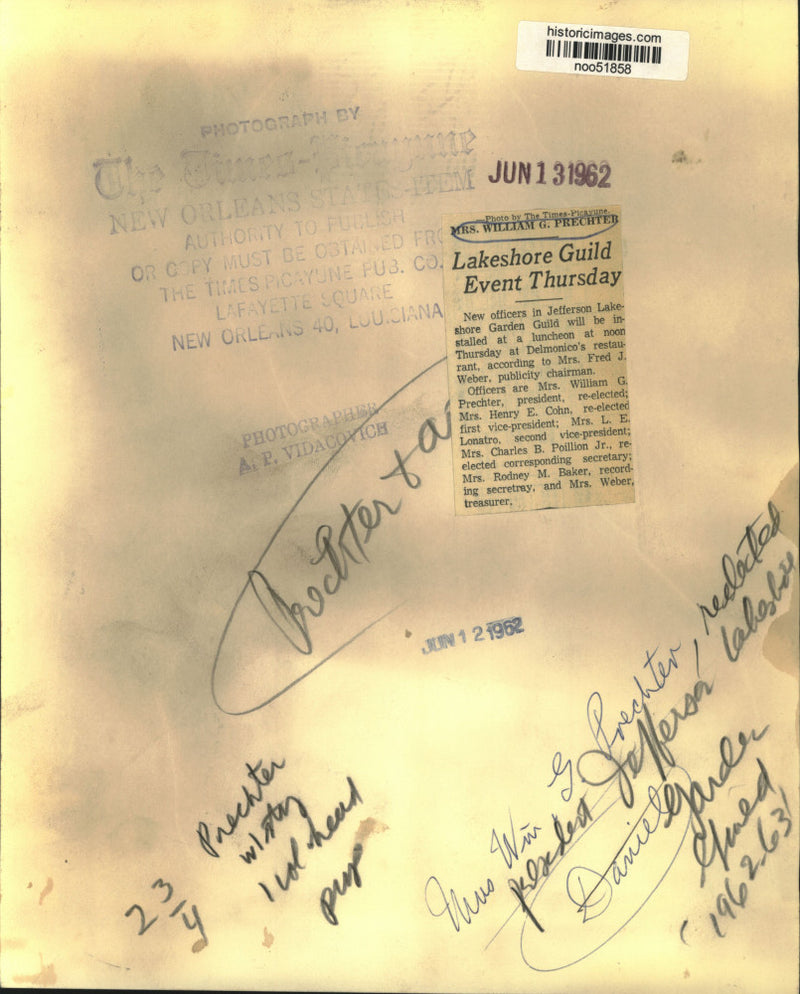 historicimages.com
noo51858
PHOTOGRAPH BY
The Times-Picayune
NEW ORLEANS STATES-ITEM
AUTHORITY TO PUBLISH
OR COPY MUST BE OBTAINED FRO
THE TIMES PICAYUNE PUB. CO.
LAFAYETTE SQUARE
NEW ORLEANS 40, LOUISIANA
JUN 13 1962
—Photo by The Times-Picayune.
MRS. WILLIAM G. PRECHTER
Lakeshore Guild
Event Thursday
New officers in Jefferson Lake-
shore Garden Guild will be in-
stalled at a luncheon at noon
Thursday at Delmonico's restau-
rant, according to Mrs. Fred J.
Weber, publicity chairman.
Officers are Mrs. William G.
Prechter, president, re-elected;
Mrs. Henry E. Cohn, re-elected
first vice-president; Mrs. L. E.
Lonatro, second vice-president;
Mrs. Charles B. Poillion Jr., re-
elected corresponding secretary;
Mrs. Rodney M. Baker, record-
ing secretray, and Mrs. Weber,
treasurer.
PHOTOGRAPHER
A. P. VIDACOVICH
Prechter
JUN 12 1962
Mrs Wm G Prechter, reelected
president Jefferson Lakeshore
Garden
Guild
1962-63
Daniel
Prechter
w/story
1 col head
2 3/4